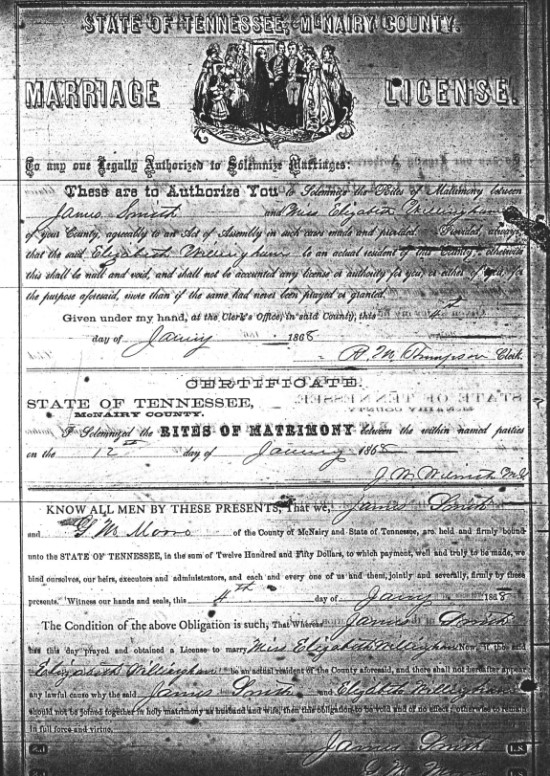 STATE OF TENNESSEE, McNAIRY COUNTY.
MARRIAGE LICENSE.
To any one Legally Authorized to Solemnize Marriages:
These are to Authorize You to Solemnize the Rites of Matrimony between
James Smith and Miss Elizabeth Willingham
of your County, agreeably to an Act of Assembly in such cases made and provided. Provided, always,
that the said Elizabeth Willingham be an actual resident of this County; otherwise
this shall be null and void, and shall not be accounted any license or authority for you, or either of you, for
the purpose aforesaid, more than if the same had never been prayed or granted.
Given under my hand, at the Clerk's Office, in said County, this 4th
day of Jan'ry 1868
R M Thompson Clerk
CERTIFICATE.
STATE OF TENNESSEE,
McNAIRY COUNTY.
I Solemnized the RITES OF MATRIMONY between the within named parties
on the 12th day of January 1868
J W
KNOW ALL MEN BY THESE PRESENTS, That we, James Smith
and G M Moore of the County of McNairy and State of Tennessee, are held and firmly bound
unto the STATE OF TENNESSEE, in the sum of Twelve Hundred and Fifty Dollars, to which payment, well and truly to be made, we
bind ourselves, our heirs, executors and administrators, and each and every one of us and them, jointly and severally, firmly by these
presents. Witness our hands and seals, this 4th day of Jan'ry 1868
The Condition of the above Obligation is such, That Whereas James Smith
has this day prayed and obtained a License to marry Miss Elizabeth Willingham Now, if the said
Elizabeth Willingham be an actual resident of the County aforesaid, and there shall not hereafter appear
any lawful cause why the said James Smith and Elizabeth Willingham
should not be joined together in holy matrimony as husband and wife, then this obligation to be void and of no effect; otherwise to remain
in full force and virtue.
James Smith L.S.
G. M.